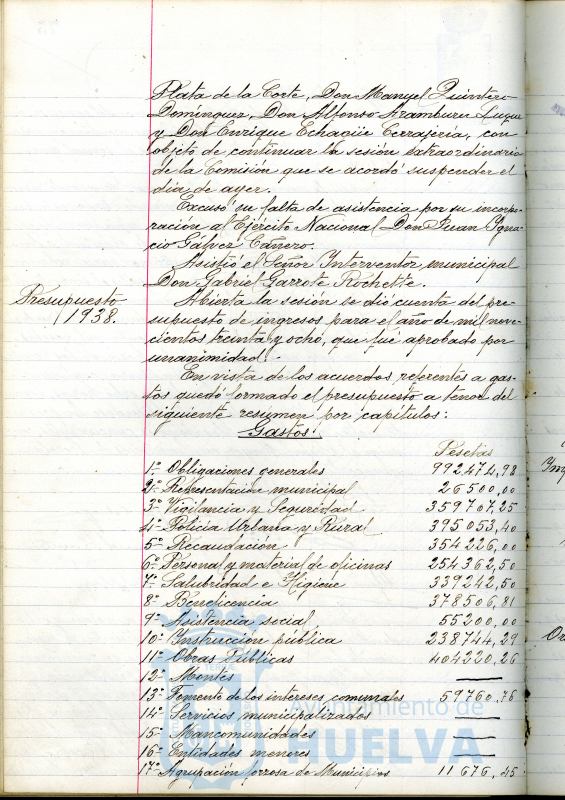 Plata de la Corte, Don Manuel Quintero
Domínguez, Don Alfonso Aramburu Luque
y Don Enrique Echagüe Cerrajería, con
objeto de continuar la sesión extraordinaria
de la Comisión que se acordó suspender el
dia de ayer.
Excusó su falta de asistencia por su incorpo-
ración al Ejército Nacional Don Juan Ygna-
cio Gálvez Cañero.
Asistió el Señor Interventor municipal
Don Gabriel Garrote Rochette.
Presupuesto
1938.
Abierta la sesión se dió cuenta del pre-
supuesto de ingresos para el año de mil nove-
cientos treinta y ocho, que fué aprobado por
unanimidad.
En vista de los acuerdos referentes a gas-
tos quedó formado el presupuesto a tenor del
siguiente resumen por capítulos:
Gastos
Pesetas
1º- Obligaciones generales 992474,98
2º- Representación municipal 26500,00
3º- Vigilancia y Seguridad 359707,25
4º- Policía Urbana y Rural 395053,40
5º- Recaudación 354226,00
6º- Personal y material de oficinas 254362,50
7º- Salubridad e Higiene 339242,50
8º- Beneficencia 378506,81
9º- Asistencia social 55200,00
10º- Instrucción pública 238744,29
11º- Obras Públicas 404220,26
12º- Montes
13º- Fomento de los intereses comunales 59760,76
14º- Servicios municipalizados
15º- Mancomunidades
16º- Entidades menores
17º- Agrupación forzosa de Municipios 11676,45
Ayuntamiento de
HUELVA